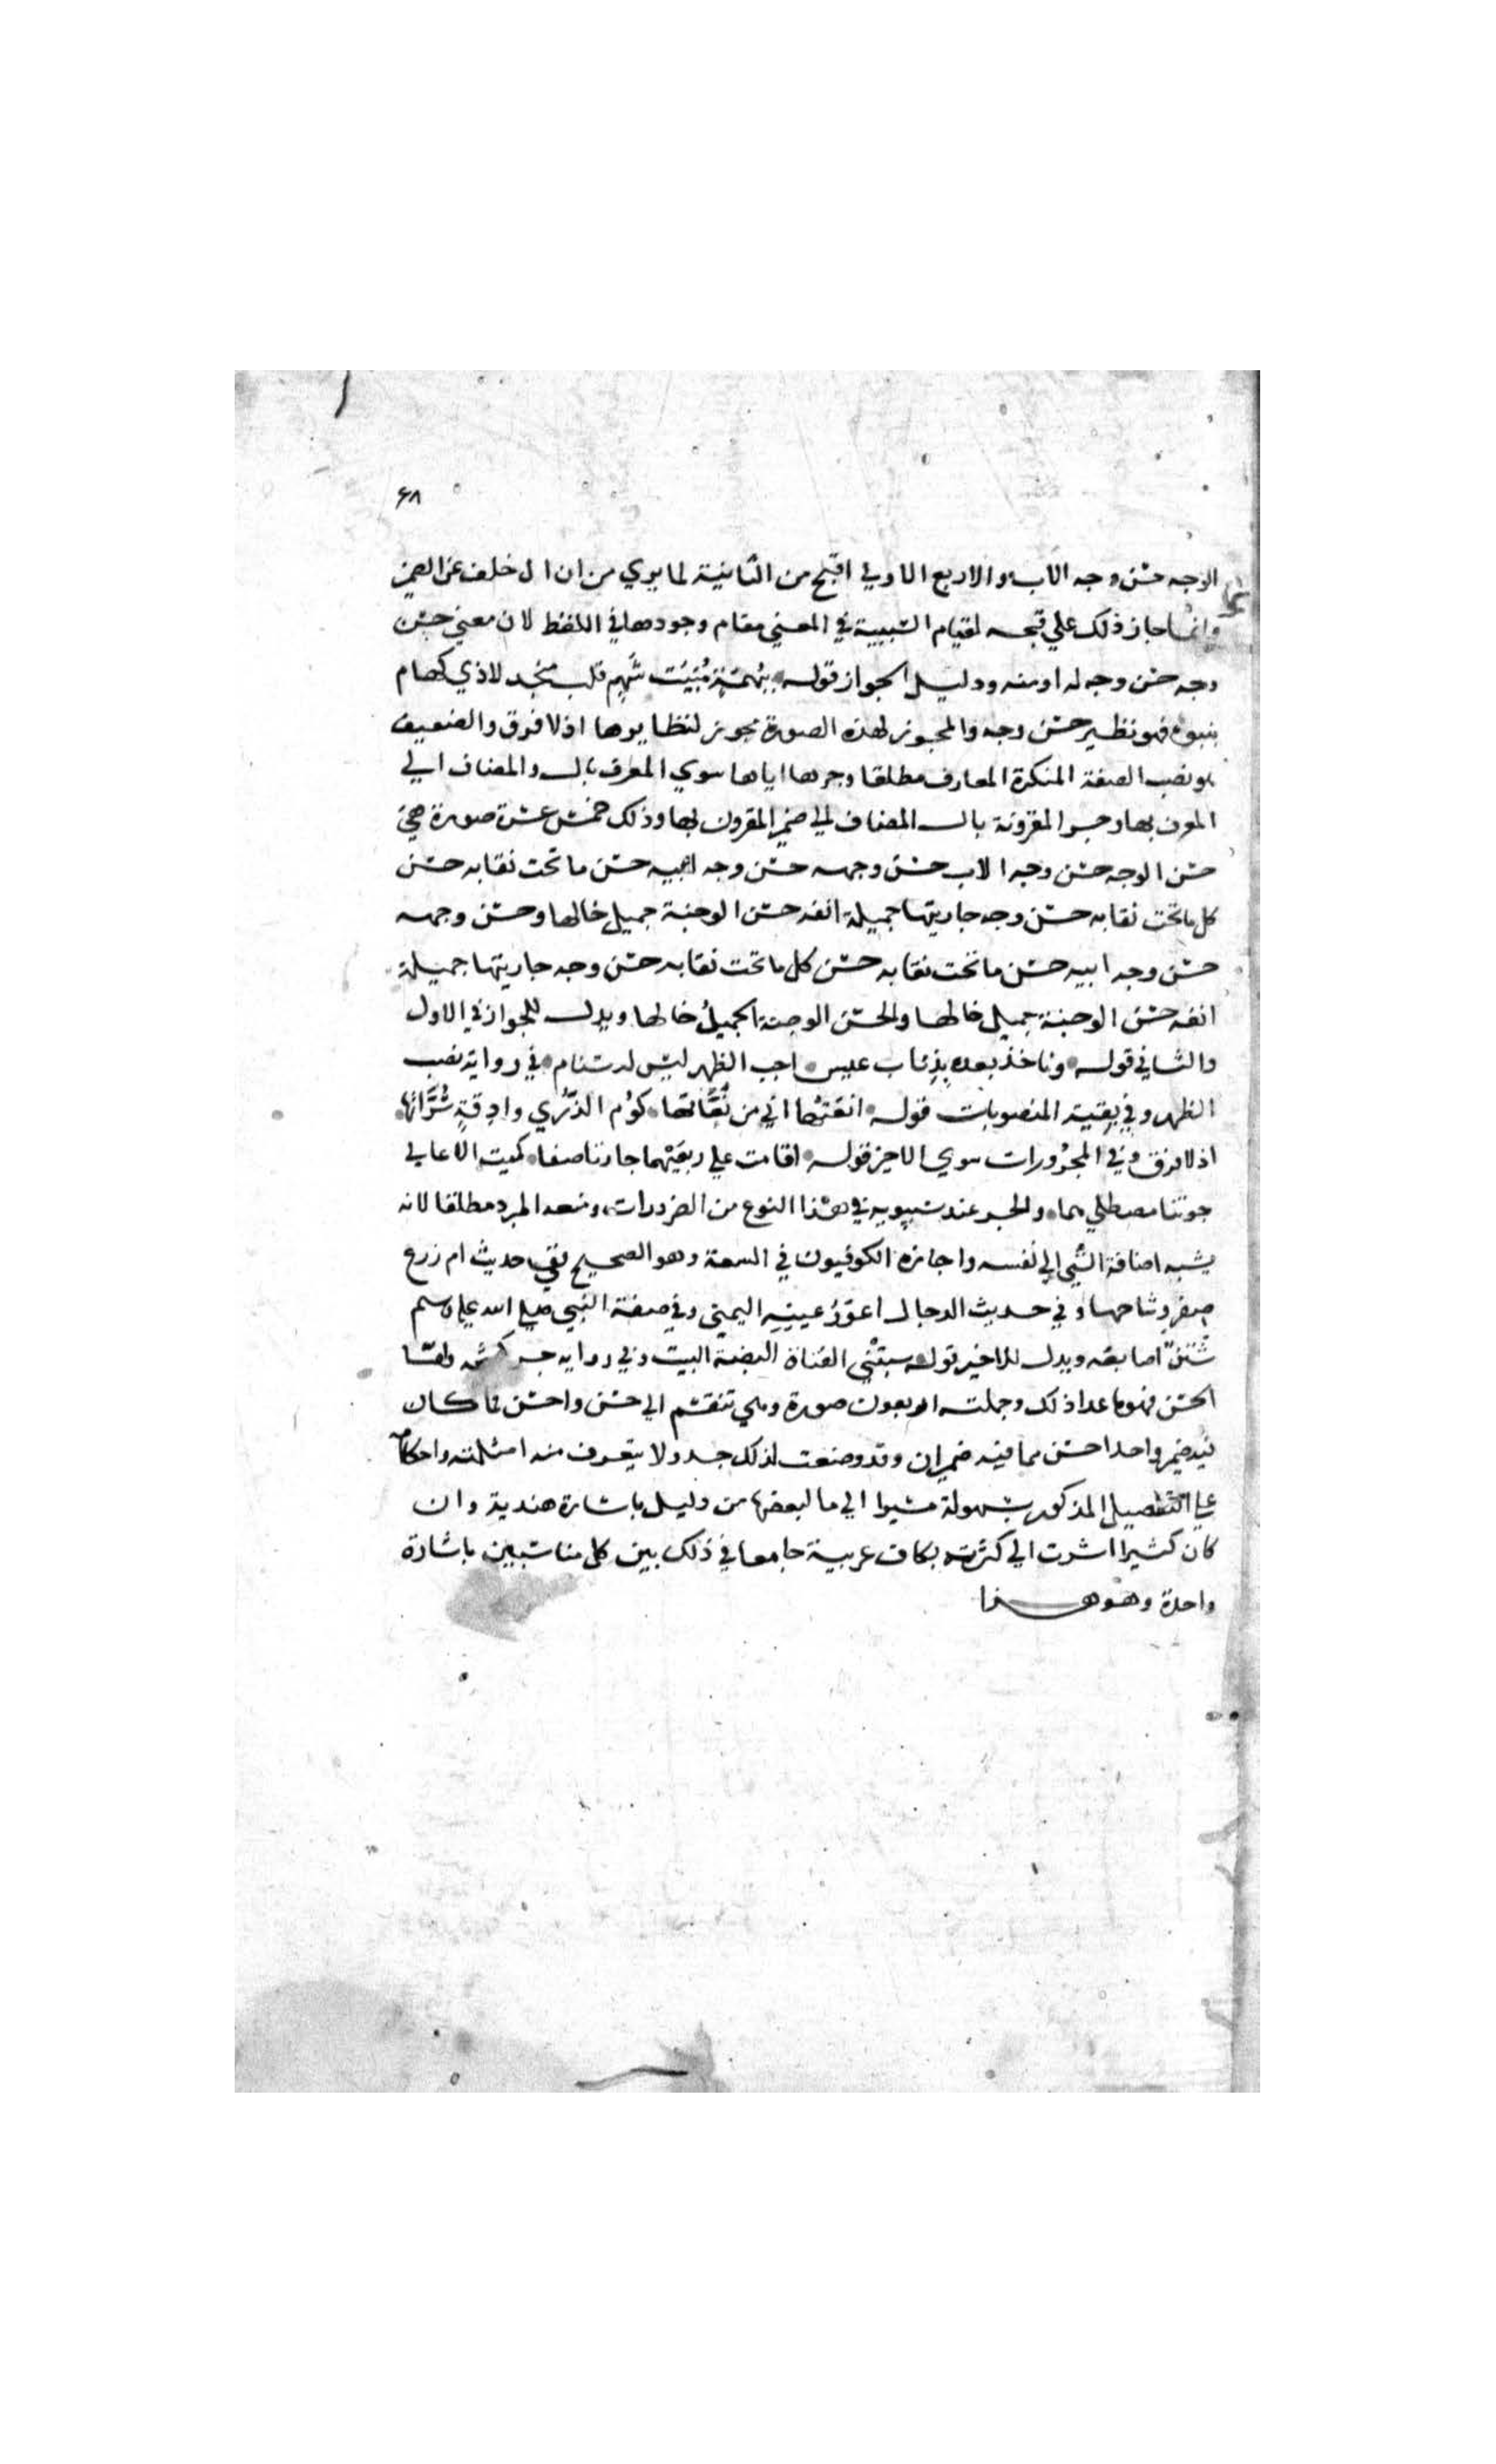 ٦٨
الوجه حسن وجه الاب والاربع الاولي اقبح من الثانية لما يري من ان ال خلف عن الضمير
وانما جاز ذلك علي قبحه لقيام السببية في المعني مقام وجودها في اللفظ لان معني حسن
وجه حسن وجه له او منه ودليل الجواز قوله ببهمة منيت شهم قلب منجد لاذي كهام
ينبو فهو نظير حسن وجه والمجوز لهذه الصورة مجوز لنظايرها اذ لا فرق والضعيف
هو نصب الصفة المنكرة المعارف مطلقا وجرها اياها سوي المعرف بال والمضاف الي
المعرف بها وجر المقرونة بال المضاف الي ضمير المقرون بها وذلك خمس عشرة صورة هي
حسن الوجه حسن وجه الاب حسن وجهه حسن وجه ابيه حسن ما تحت نقابه حسن
كل ما تحت نقابه حسن وجه جاريتها جميلة انفه حسن الوجنة جميل خالها وحسن وجهه
حسن وجه ابيه حسن ما تحت نقابه حسن كل ما تحت نقابه حسن وجه جاريتها جميلة
انفه حسن الوجنة جميل خالها والحسن الوجنة الجميل خالها ويدل للجواز في الاول
والثاني قوله وناخذ بعده بذناب عيس اجب الظهر ليس له سنام في رواية نصب
الظهر وفي بقية المنصوبات قوله انعتها اني من نعاتها كوم الذري وادقة سراتها
اذ لا فرق وفي المجرورات سوي الاخير قوله اقامت علي ربعيهما جارتا صفا كميت الاعالي
جونتا مصطلاهما والجر عند سيبويه في هذا النوع من الضرورات ومنعه المبرد مطلقا لانه
يشبه اضافة الشي الي نفسه واجازه الكوفيون في السعة وهو الصحيح ففي حديث ام زرع
صفر وشاحها وفي حديث الدجال اعور عينه اليمني وفي صفة النبي صلي الله عليه وسلم
شثن اصابعه ويدل للاخير قوله سبتني الفتاة البضة البيت وفي رواية جر واما
الحسن فهو ما عدا ذلك وجملته اربعون صورة وهي تنقسم الي حسن واحسن فما كان
فيه ضمير واحد احسن مما فيه ضميران وقد وضعت لذلك جدولا يتعرف منه امثلته واحكامه
علي التفصيل المذكور بسهولة مشيرا الي ما لبعضها من دليل باشارة هندية وان
كان كثيرا اشرت الي كثرته بكاف عربية جامعا في ذلك بين كل مناسبين باشارة
واحدة وهو هذا